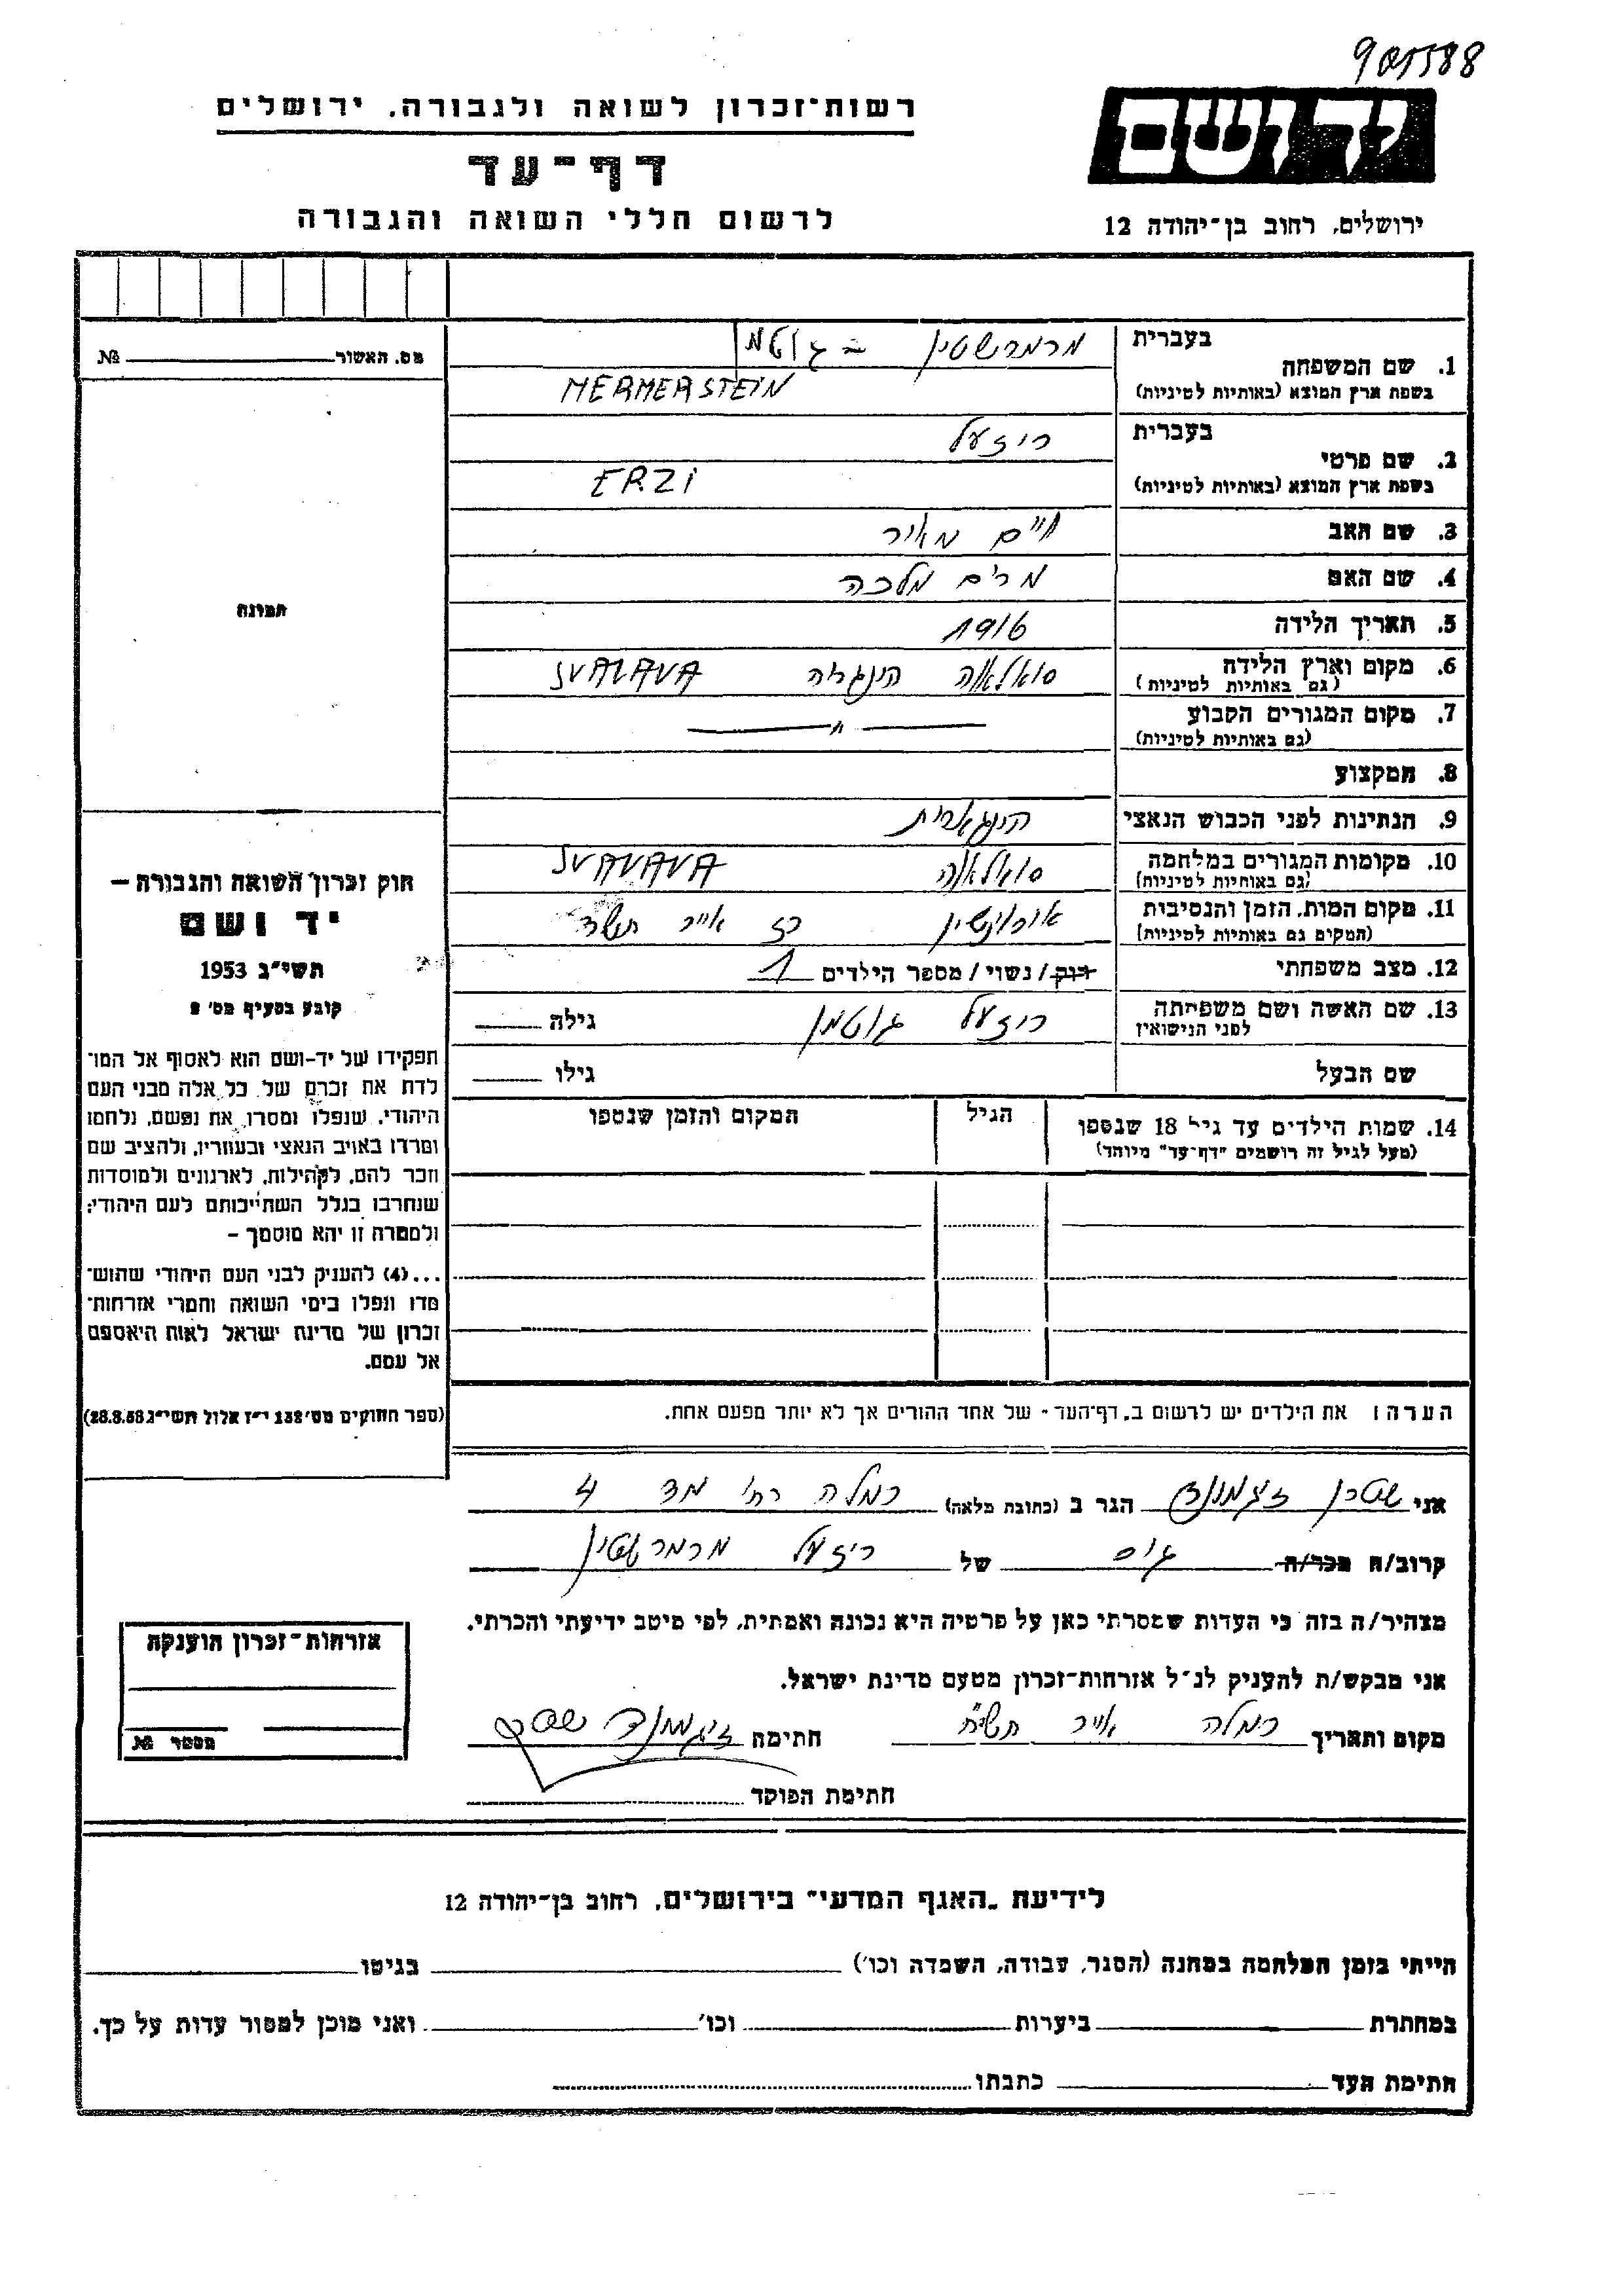 901588
יד ושם
ירושלים, רחוב בן־יהודה 12
רשות־זכרון לשואה ולגבורה, ירושלים
דף־עד
לרשום חללי השואה והגבורה
מס. האשור № 
תמונה
חוק זכרון השואה והגבורה —
יד ושם
תשי"ג 1953
קובע בסעיף מס' 2
תפקידו של יד-ושם הוא לאסוף אל המו־
לדת את זכרם של כל אלה מבני העם
היהודי, שנפלו ומסרו את נפשם, נלחמו
ומרדו באויב הנאצי ובעוזריו, ולהציב שם
וזכר להם, לקהילות, לארגונים ולמוסדות
שנחרבו בגלל השתייכותם לעם היהודי;
ולמטרה זו יהא מוסמך –
...(4) להעניק לבני העם היהודי שהוש־
מדו ונפלו בימי השואה והמרי אזרחות־
זכרון של מדינת ישראל לאות היאספם
אל עמם.
(ספר החוקים מס' 132 י"ז אלול תשי"ג 28.8.53)
בעברית מרמרשטין
1. שם המשפחה
בשפת ארץ המוצא (באותיות לטיניות) MERMERSTEIN
בעברית ריזעל
2. שם פרטי
בשפת ארץ המוצא (באותיות לטיניות) ERZI
3. שם האב חיים מאיר
4. שם האם מרים מלכה
5. תאריך הלידה 1916
6. מקום וארץ הלידה סואלאוה הונגריה SVALAVA
(גם באותיות לטיניות)
7. מקום המגורים הקבוע — " —
(גם באותיות לטיניות)
8. המקצוע
9. הנתינות לפני הכבוש הנאצי הונגארית
10. מקומות המגורים במלחמה סואלאוה SVALAVA
(גם באותיות לטיניות)
11. מקום המות, הזמן והנסיבות כז אייר תש"ד
(המקום גם באותיות לטיניות)
12. מצב משפחתי רוק / נשוי / מספר הילדים 1
13. שם האשה ושם משפחתה ריזעל גוטמן גילה
לפני הנישואין
שם הבעל גילו
14. שמות הילדים עד גיל 18 שנספו הגיל המקום והזמן שנספו
(מעל לגיל זה רושמים "דף־עד" מיוחד)
הערה: את הילדים יש לרשום ב"דף־העד" של אחד ההורים אך לא יותר מפעם אחת.
אני שטרן זיגמונד הגר ב (כתובת מלאה) רמלה רח' 4
קרוב/ה מכר/ה גיס של ריזעל מרמרשטין
מצהיר/ה בזה כי העדות שמסרתי כאן על פרטיה היא נכונה ואמתית, לפי מיטב ידיעתי והכרתי.
אני מבקש/ת להעניק לנ"ל אזרחות־זכרון מטעם מדינת ישראל.
מקום ותאריך רמלה אייר חתימה זיגמונד שטרן
חתימת הפוקד
אזרחות־זכרון הוענקה
מספר №
לידיעת "האגף המדעי" בירושלים, רחוב בן־יהודה 12
הייתי בזמן המלחמה במחנה (הסגר, עבודה, השמדה וכו') בגיטו
במחתרת ביערות וכו' ואני מוכן למסור עדות על כך.
חתימת העד כתבתו